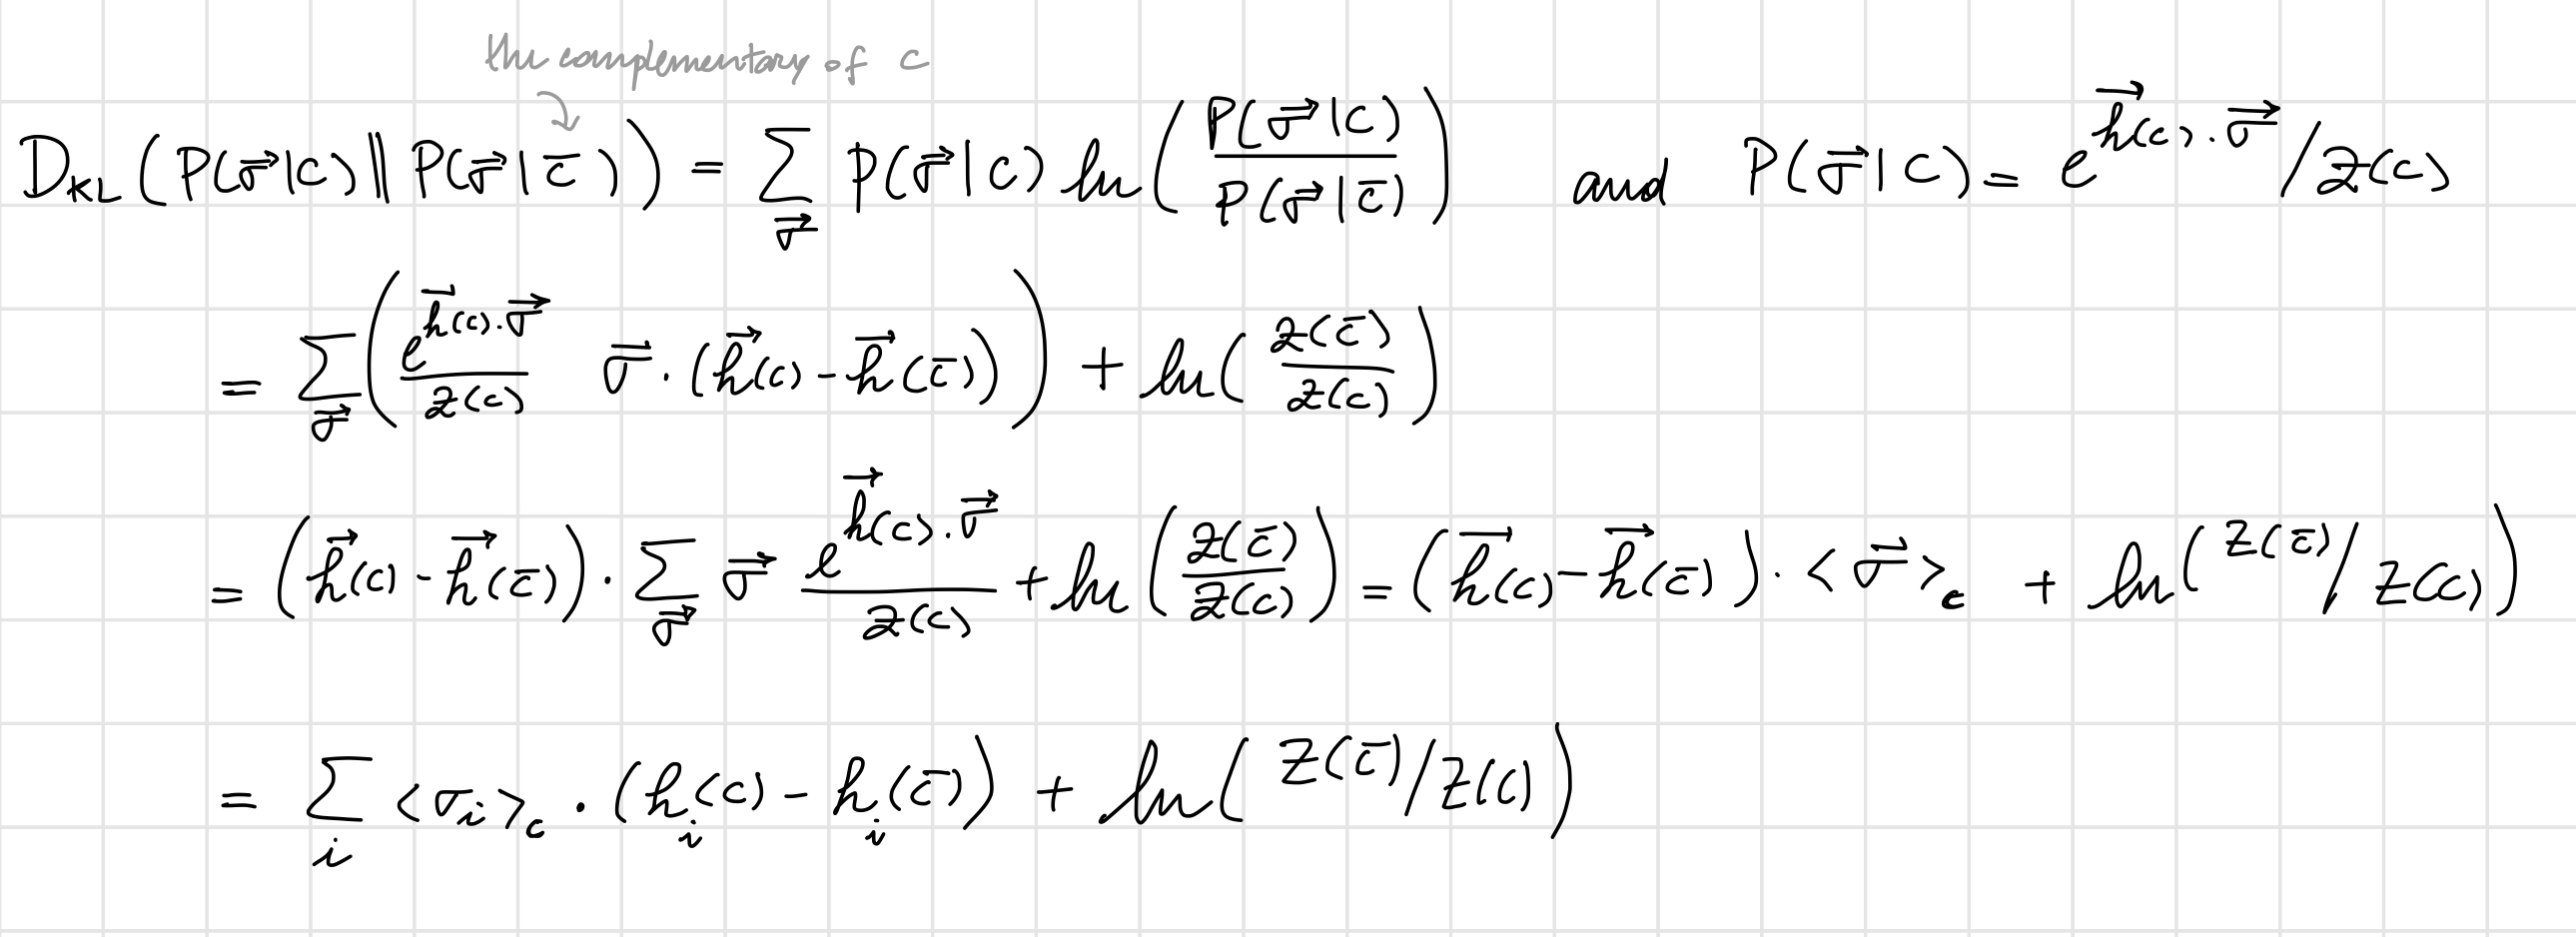 the complementary of c
D_{KL}(P(\vec{σ}|C)||P(\vec{σ}|\bar{c})) = \sum_{\vec{σ}} P(\vec{σ}|C) ln(\frac{P(\vec{σ}|C)}{P(\vec{σ}|\bar{c})}) and P(\vec{σ}|C) = e^{\vec{h}(c)·\vec{σ}}/Z(c)
= \sum_{\vec{σ}}(\frac{e^{\vec{h}(c)·\vec{σ}}}{Z(c)} \vec{σ}·(\vec{h}(c)-\vec{h}(\bar{c}))) + ln(\frac{Z(\bar{c})}{Z(c)})
= (\vec{h}(c)-\vec{h}(\bar{c}))·\sum_{\vec{σ}} \vec{σ} \frac{e^{\vec{h}(c)·\vec{σ}}}{Z(c)} + ln(\frac{Z(\bar{c})}{Z(c)}) = (\vec{h}(c)-\vec{h}(\bar{c}))·<\vec{σ}>_c + ln(Z(\bar{c})/Z(c))
= \sum_i <σ_i>_c·(h_i(c)-h_i(\bar{c})) + ln(Z(\bar{c})/Z(c))